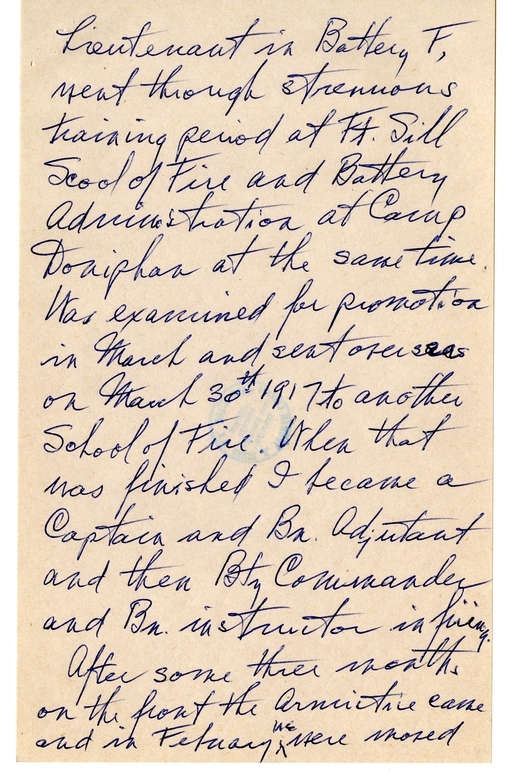 Lieutenant in Battery F,
went through strenuous
training period at Ft. Sill
Scool of Fire and Battery
Administration at Camp
Doniphan at the same time.
Was examined for promotion
in March and sent overseas
on March 30th 1917 to another
School of Fire. When that
was finished I became a
Captain and Bn. Adjutant
and then Bty Commander
and Bn. instructor in firing.
After some three months
on the front the Armistice came
and in Febuary we were moved